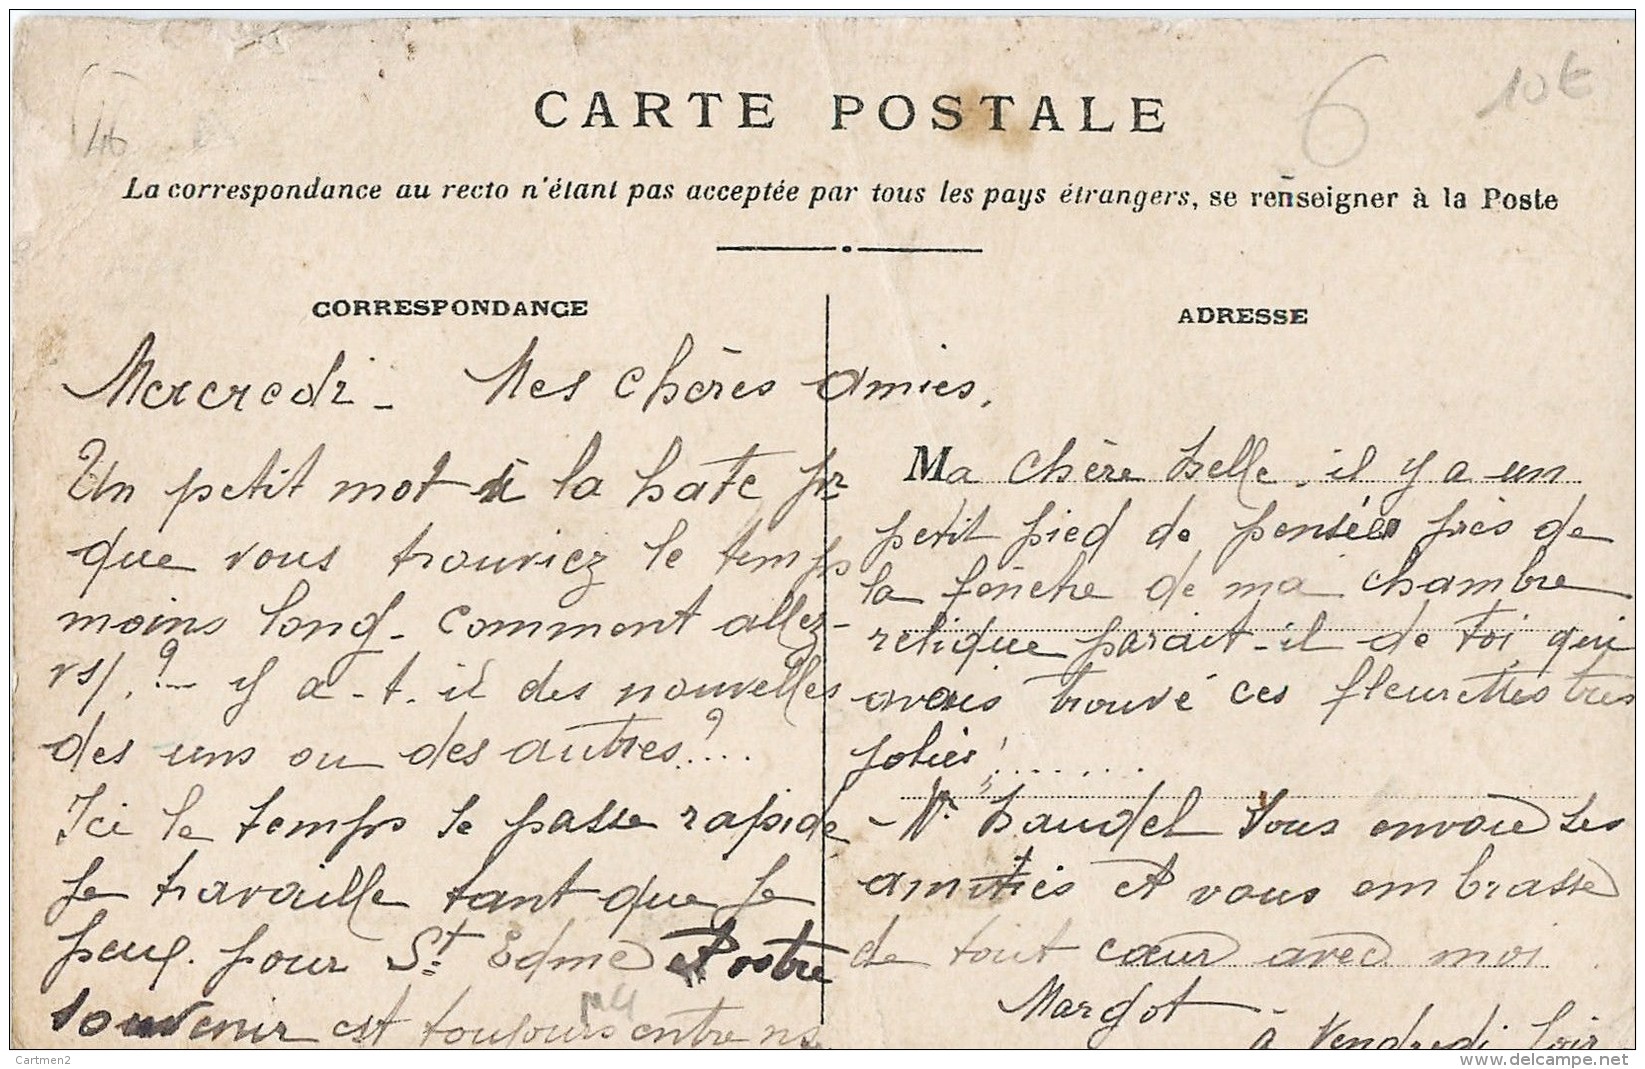 46
6
10€
CARTE POSTALE
La correspondance au recto n'étant pas acceptée par tous les pays étrangers, se renseigner à la Poste
CORRESPONDANCE
Mercredi - Mes chères amies,
Un petit mot à la hate pr
que vous trouviez le temps
moins long - Comment allez-
vs/. ? - y a-t-il des nouvelles
des uns ou des autres ? ...
Ici le temps se passe rapide
je travaille tant que je
peux pour St Edme et votre
souvenir est toujours entre ns
ADRESSE
Ma chère belle, il y a un
petit pied de pensées près de
la fenêtre de ma chambre
relique parait-il de toi qui
avais trouvé ces fleurettes très
jolies ! .......
- Vous envoie ses
amitiés et vous embrasse
de tout cœur avec moi
Margot -
à Vendredi soir
Cartmen2
www.delcampe.net